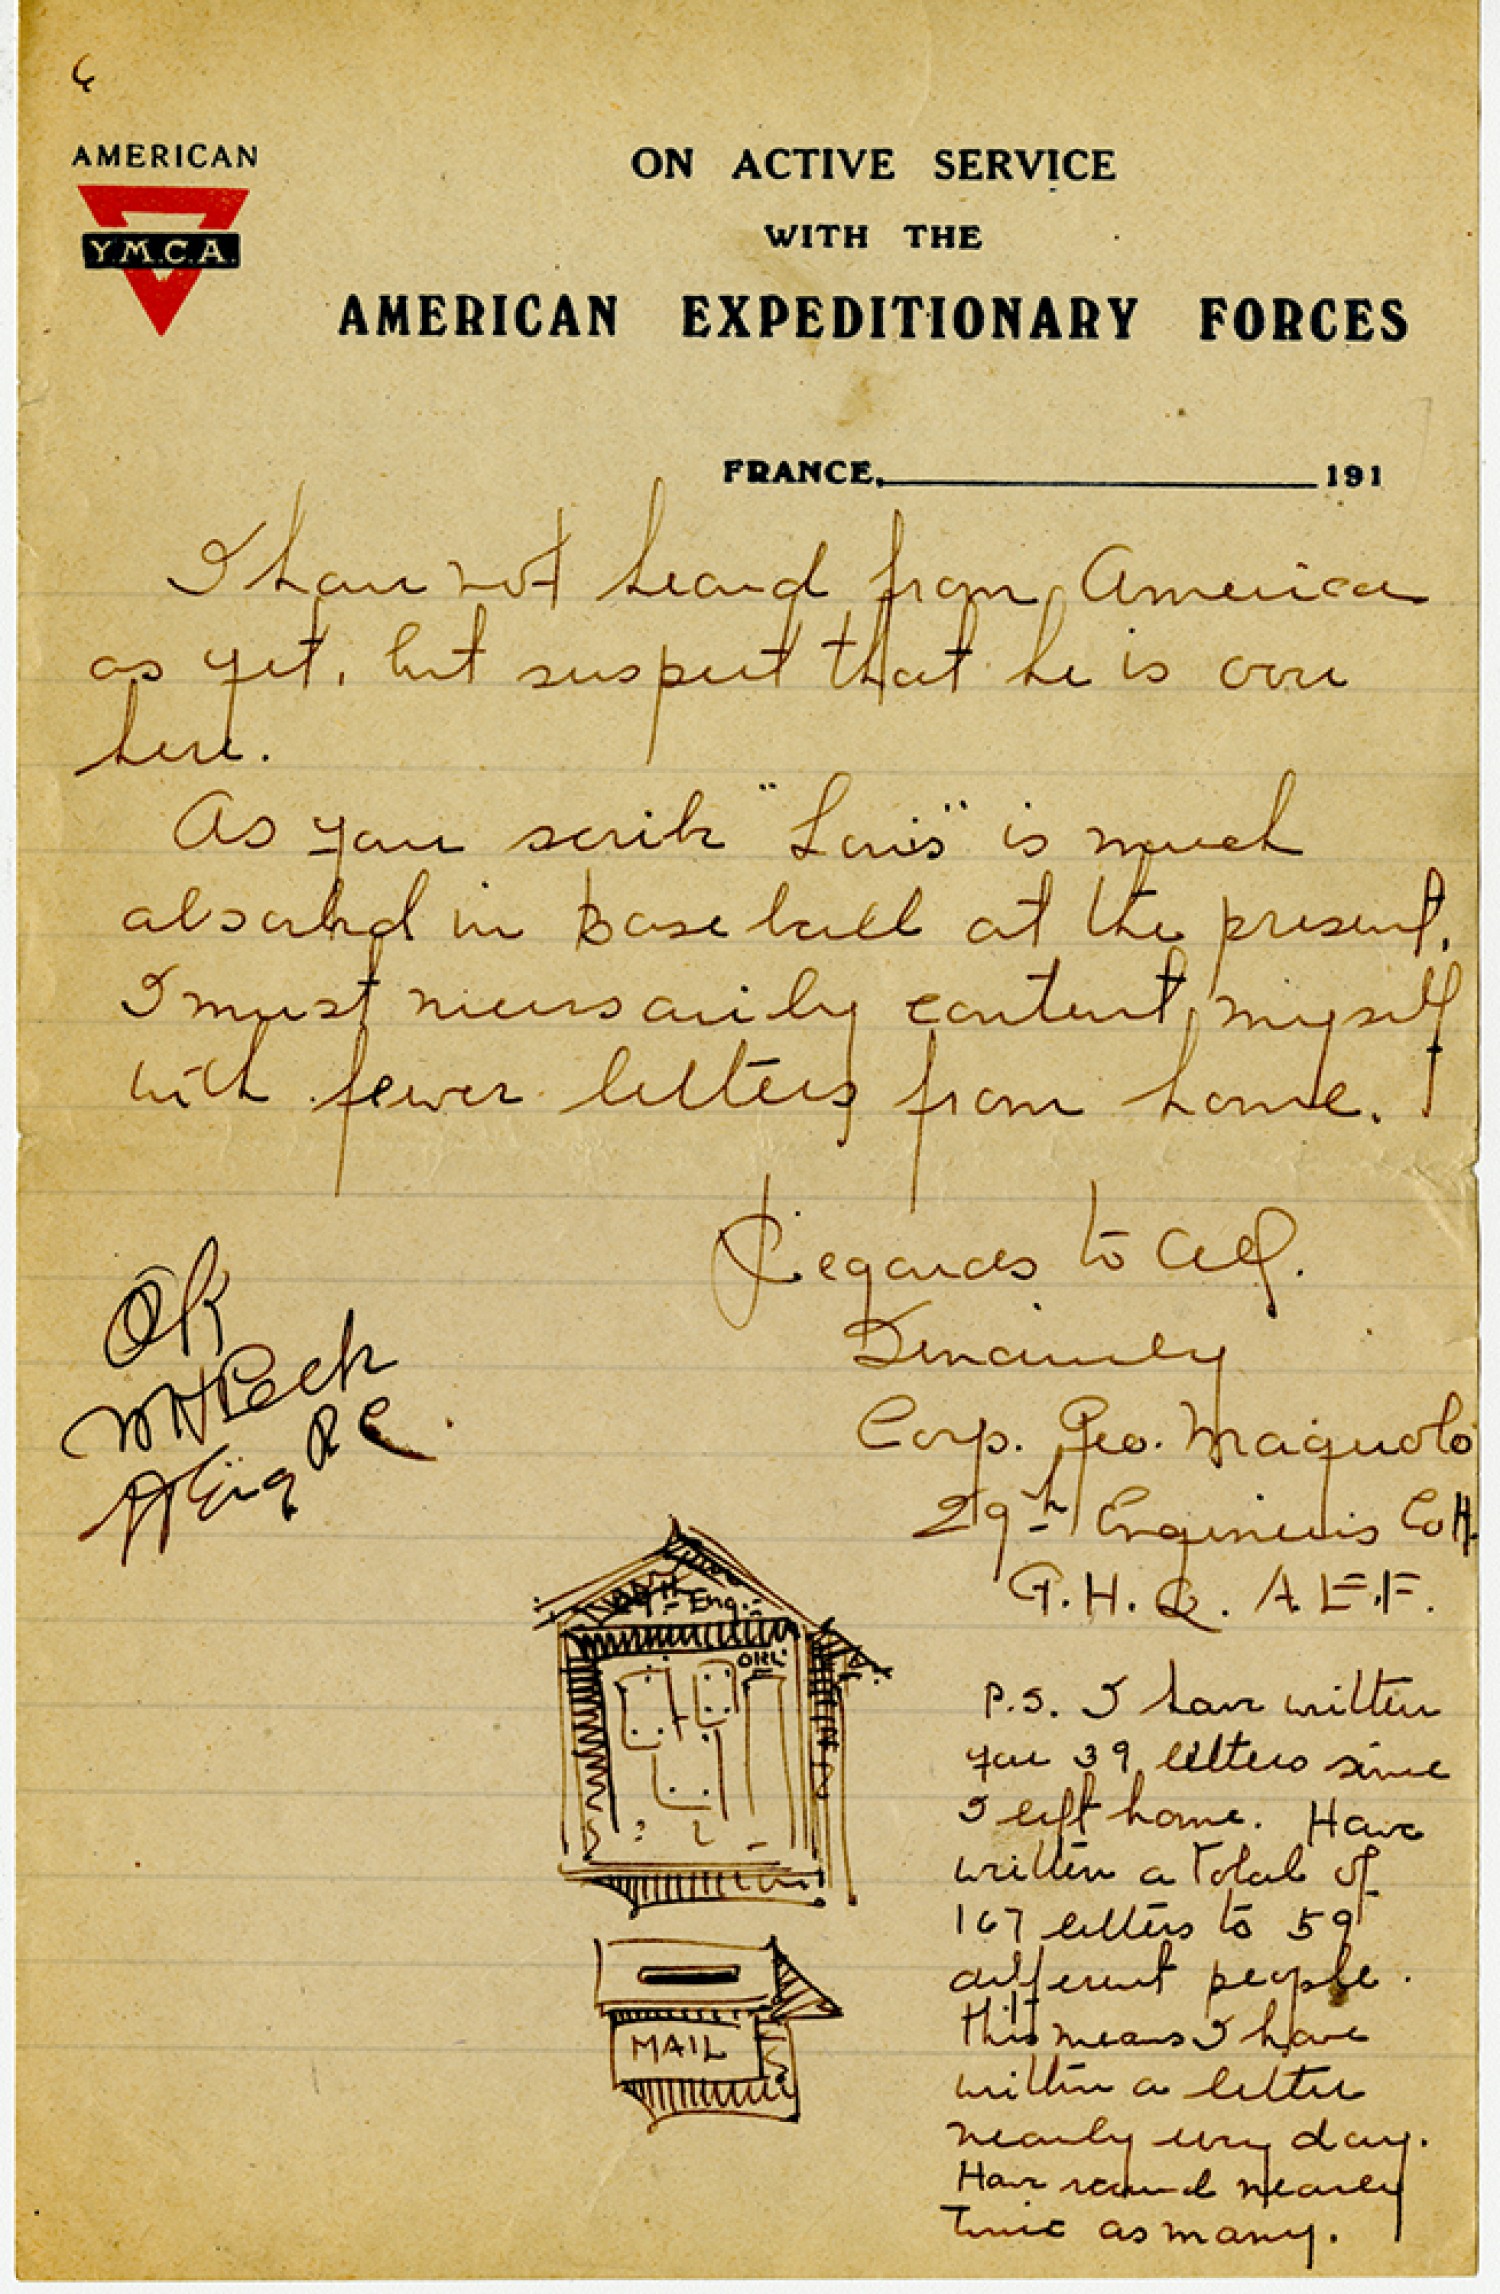 6
AMERICAN
Y.M.C.A.
ON ACTIVE SERVICE
WITH THE
AMERICAN EXPEDITIONARY FORCES
FRANCE, 191
I have not heard from America
as yet, but suspect that he is over
here.
As you write "Louis" is much
absorbed in Base ball at the present.
I must necessarily content myself
with fewer letters from home.
Regards to all.
Sincerely
Corp. Geo. Maguolo
29th Engineers Co H.
G.H.Q. A.E.F.
OK
WH Peck
Eng RC.
29th Eng.
MAIL
P.S. I have written
you 39 letters since
I left home. Have
written a total of
167 letters to 59
different people.
this means I have
written a letter
nearly every day.
Have received nearly
twice as many.